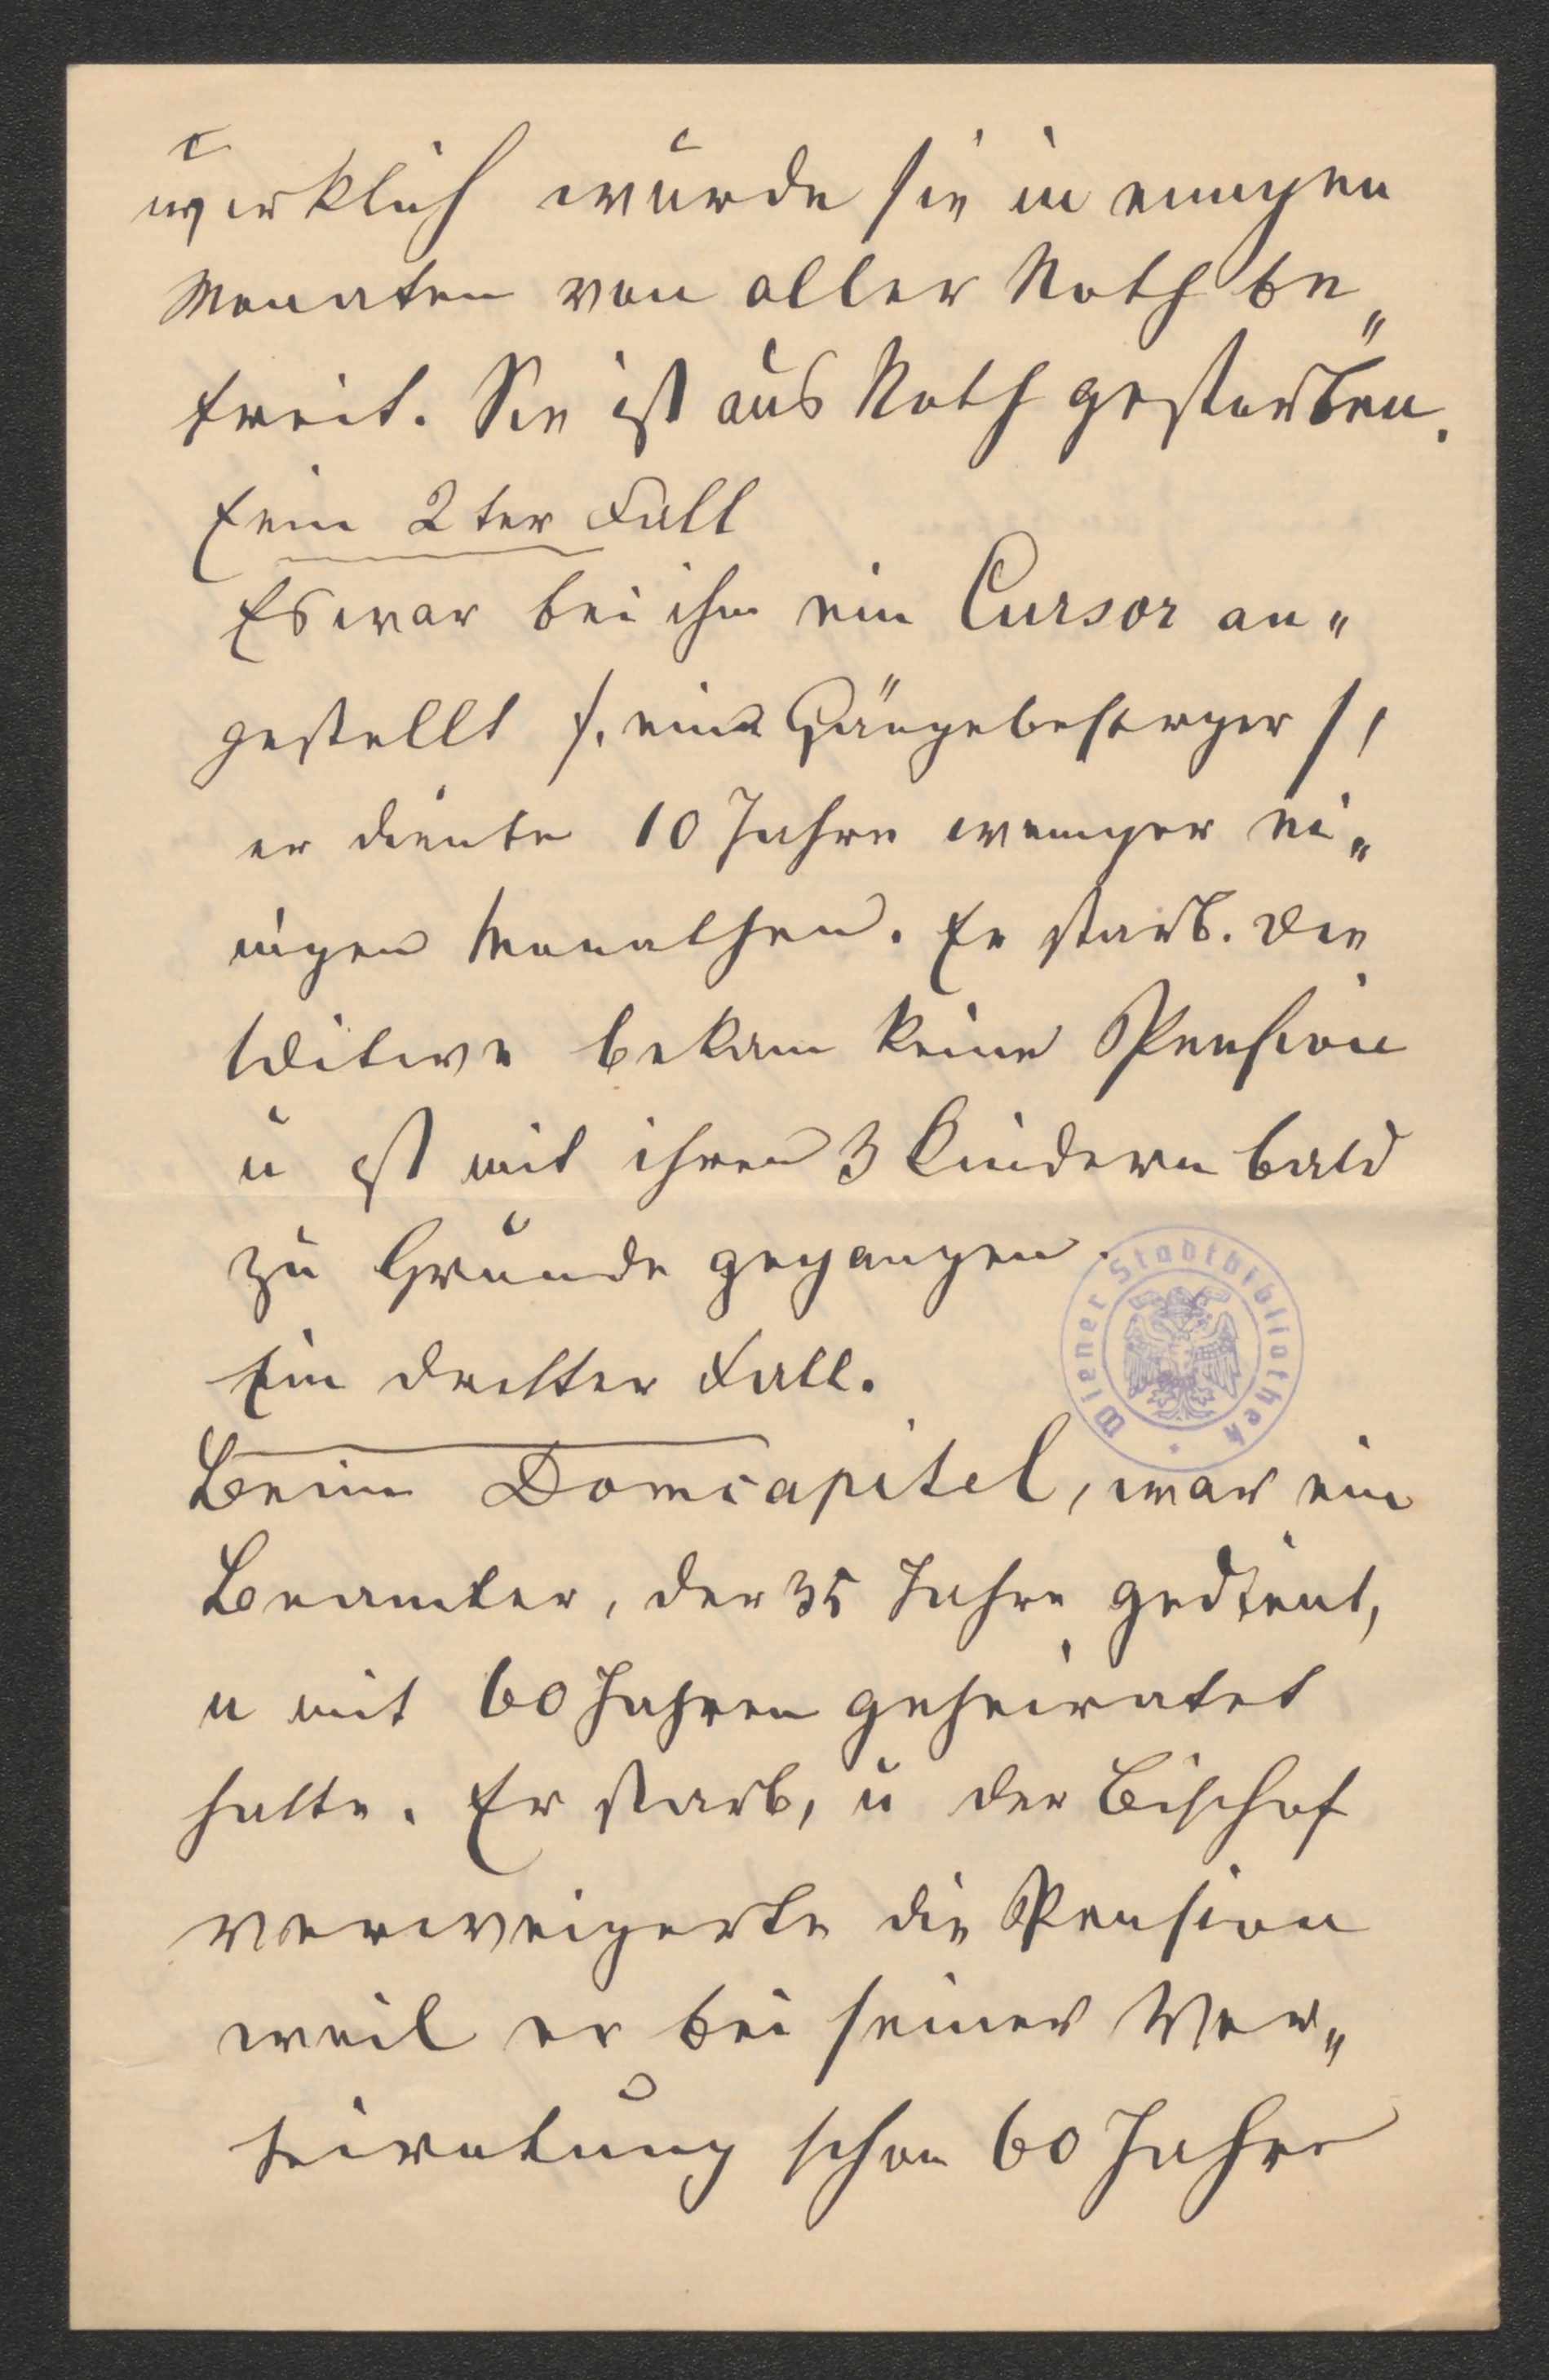 wirklich wurde sie in einigen
Monaten von aller Noth be„
freit. Sie ist aus Noth gestorben.
Ein 2ter Fall
Es war bei ihm ein Cursor an„
gestellt /. eine Gängebesorger /,
er diente 10 Jahre weniger ei„
nigen Monathen. Er starb. Die
Witwe bekam keine Pension
u ist mit ihren 3 Kindern bald
zu Grunde gegangen.
Ein dritter Fall.
Beim Domcapitel, war ein
Beamter, der 35 Jahre gedient,
u mit 60 Jahren geheiratet
hatte. Er starb, u der Bischof
verweigerte die Pension
weil er bei seiner Ver„
heiratung schon 60 Jahre
Wiener Stadtbibliothek